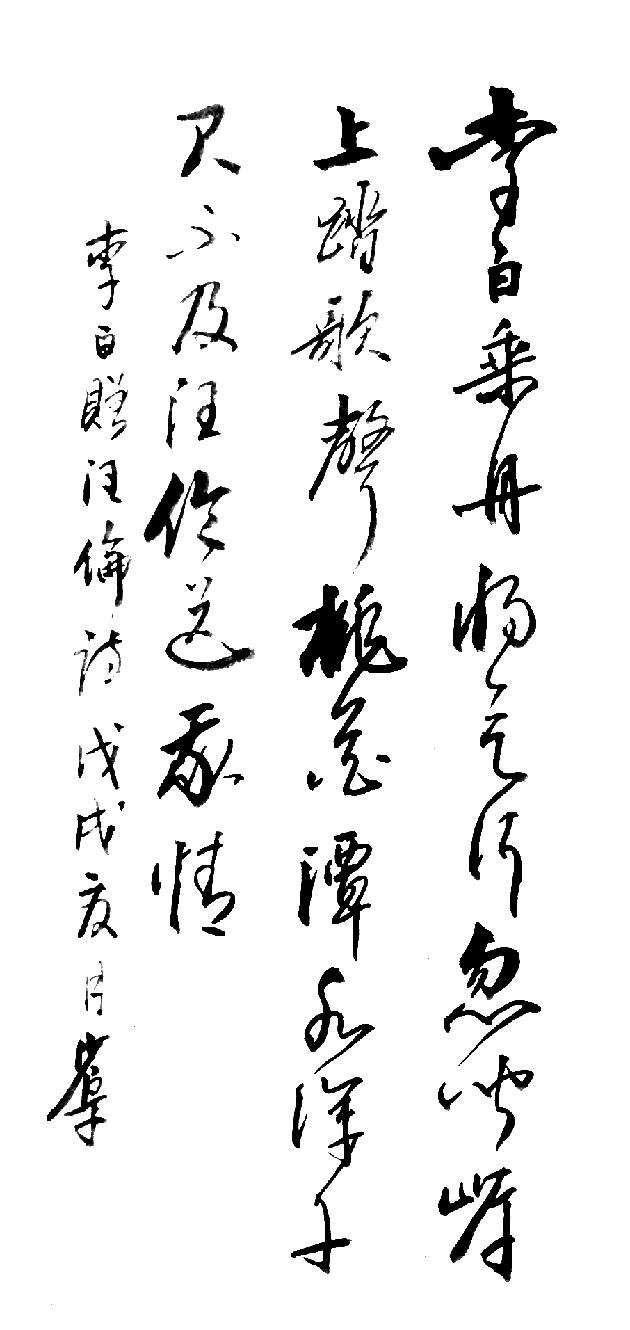 李白乘舟将欲行忽闻岸
上踏歌聲桃花潭水深千
尺不及汪伦送我情
李白贈汪倫詩戊戌夏月羣